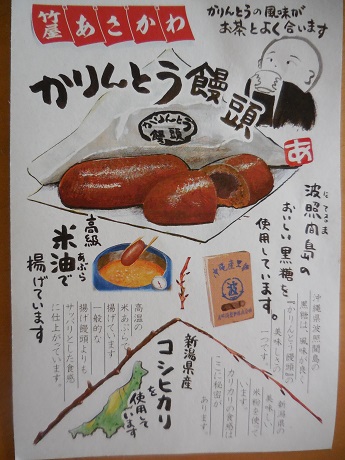 竹屋 あさかわ
かりんとうの風味が
お茶とよく合います
かりんとう饅頭
かりんとう
饅頭
あ
波照間島の
はてるま
おいしい黒糖を
使用しています。
高級
米油で
あぶら
揚げています
波
沖縄県波照間島の
黒糖は、風味が良く
「かりんとう饅頭」の
美味しさの
一つです。
高温の
米あぶらで
揚げています
一般的な
揚げ饅頭よりも
サクリとした食感
に仕上がっています。
新潟県産
コシヒカリ
を
使用して
います
新潟県の
美味しい
米粉を使って
います
カリカリの食感は
ここに秘密が
あります。